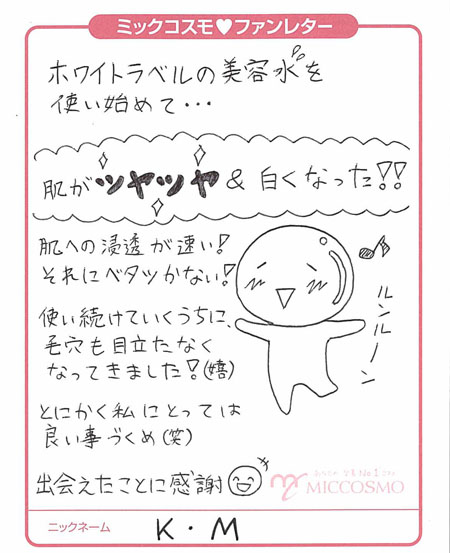 ミックコスモ♥ファンレター
ホワイトラベルの美容水を
使い始めて・・・
肌がツヤツヤ & 白くなった!!
肌への浸透が速い!
それにベタツかない!
使い続けていくうちに、
毛穴も目立たなく
なってきました!(嬉)
ルンルーン
とにかく私にとっては
良い事づくめ(笑)
出会えたことに感謝
MICCOSMO
ニックネーム
K・M